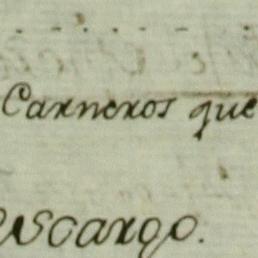 Carneros que
escargo.